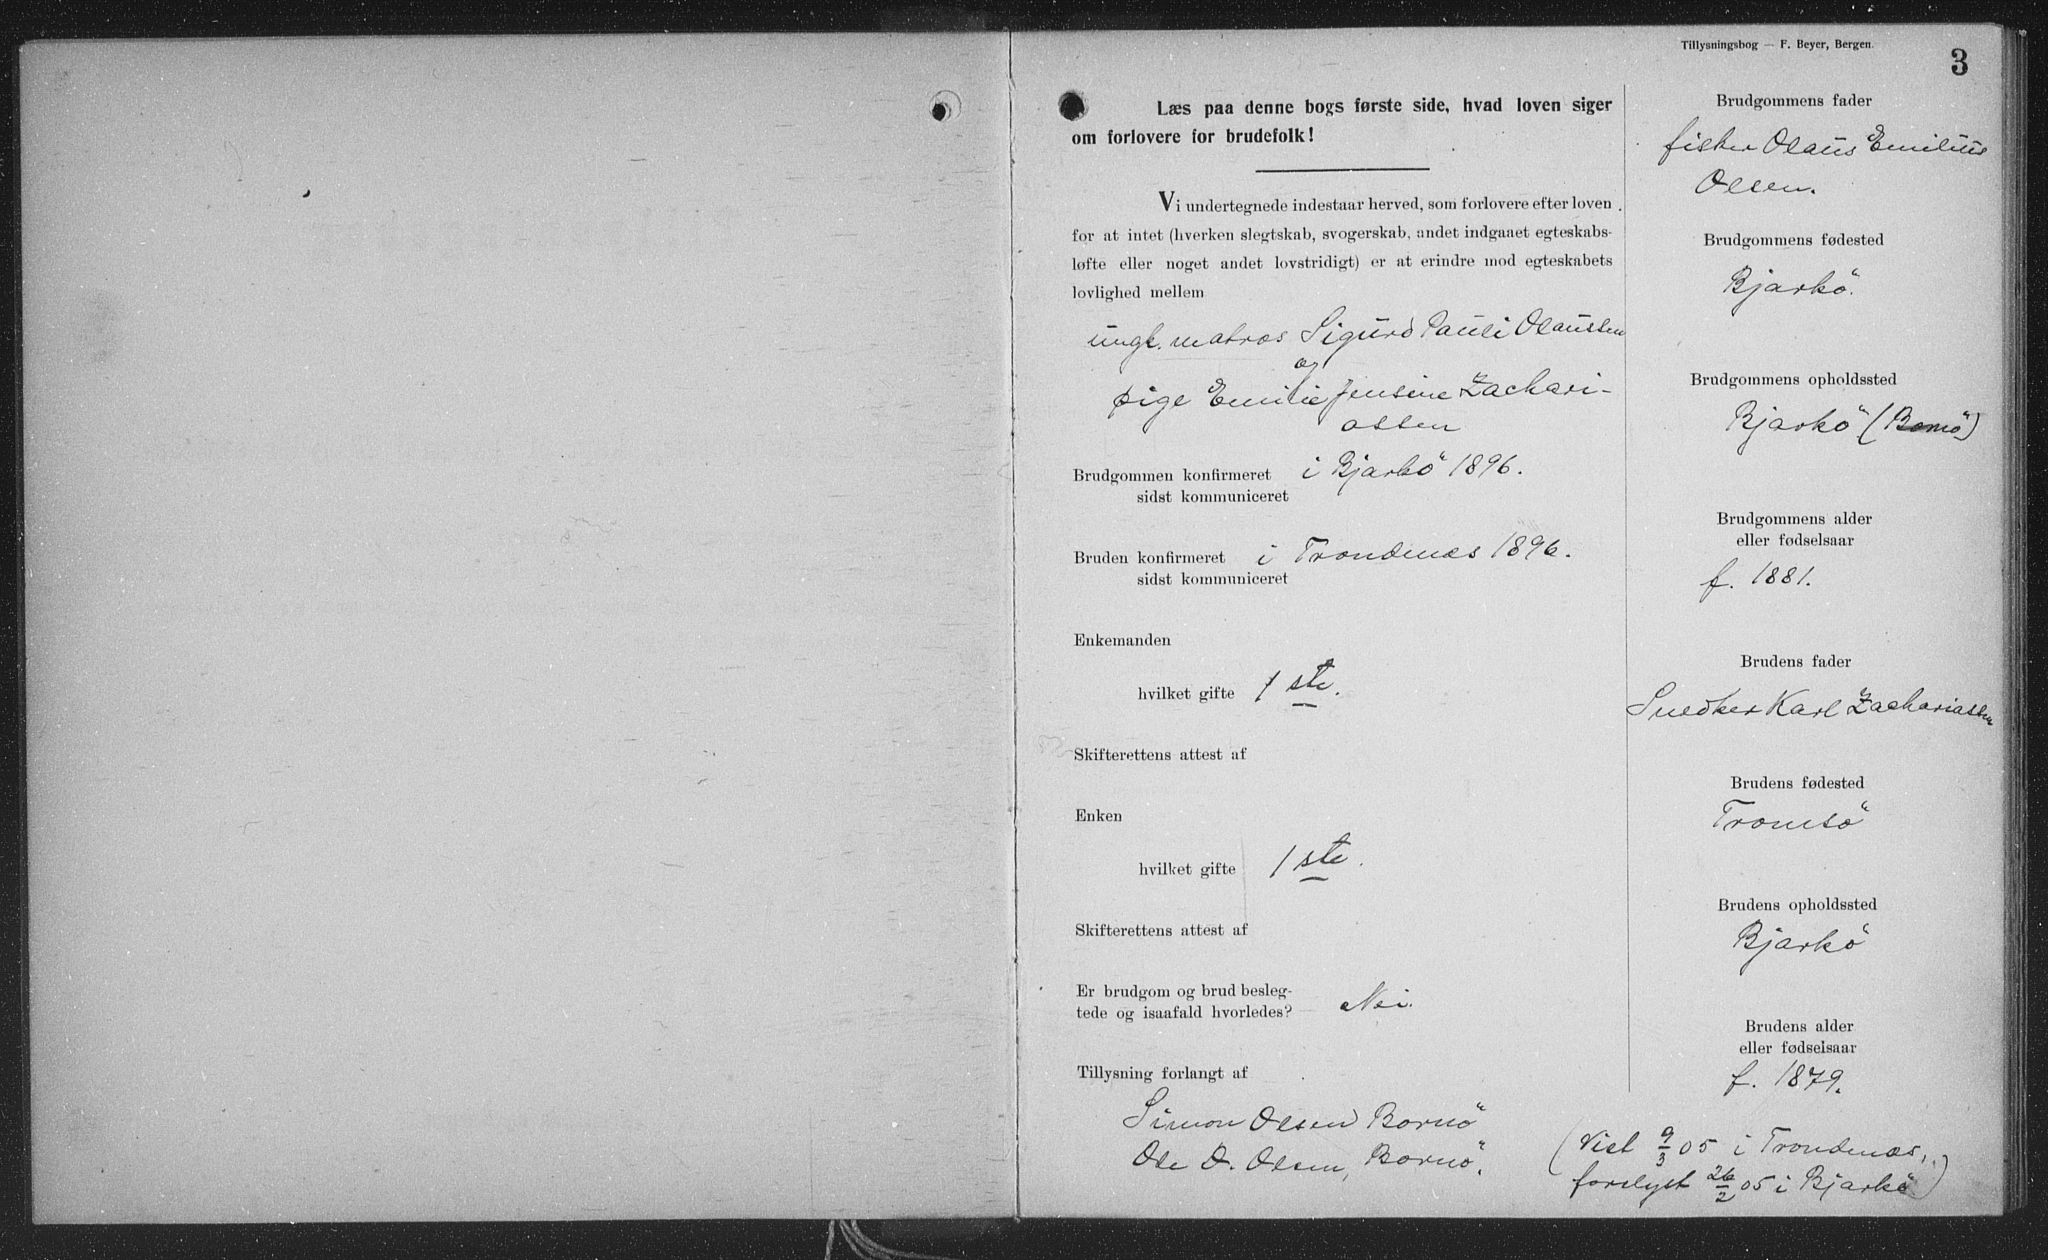 Tillysningsbog — F. Beyer, Bergen.
3
Læs paa denne bogs første side, hvad loven siger
om forlovere for brudefolk!
Vi undertegnede indestaar herved, som forlovere efter loven
for at intet (hverken slegtskab, svogerskab, andet indgaaet egteskabs-
løfte eller noget andet lovstridigt) er at erindre mod egteskabets
lovlighed mellem
ungk. matros Sigurd Pauli Olaussen
og
pige Emilie Jensine Zachari-
assen
Brudgommen konfirmeret i Bjarkö 1896.
sidst kommuniceret
Bruden konfirmeret i Trondenæs 1896.
sidst kommuniceret
Enkemanden
hvilket gifte 1ste.
Skifterettens attest af
Enken
hvilket gifte 1ste.
Skifterettens attest af
Er brudgom og brud besleg-
tede og isaafald hvorledes? Nei.
Tillysning forlangt af
Simon Olsen Bornö
Ole O. Olsen, Bornö.
Brudgommens fader
fisker Olaus Emilius
Olsen.
Brudgommens fødested
Bjarkö.
Brudgommens opholdssted
Bjarkö (Bornö)
Brudgommens alder
eller fødselsaar
f. 1881.
Brudens fader
Snedker Karl Zachariassen
Brudens fødested
Tromsö
Brudens opholdssted
Bjarkö
Brudens alder
eller fødselsaar
f. 1879.
(viet 9/3 05 i Trondenæs,
forelyst 26/2 05 i Bjarkö)